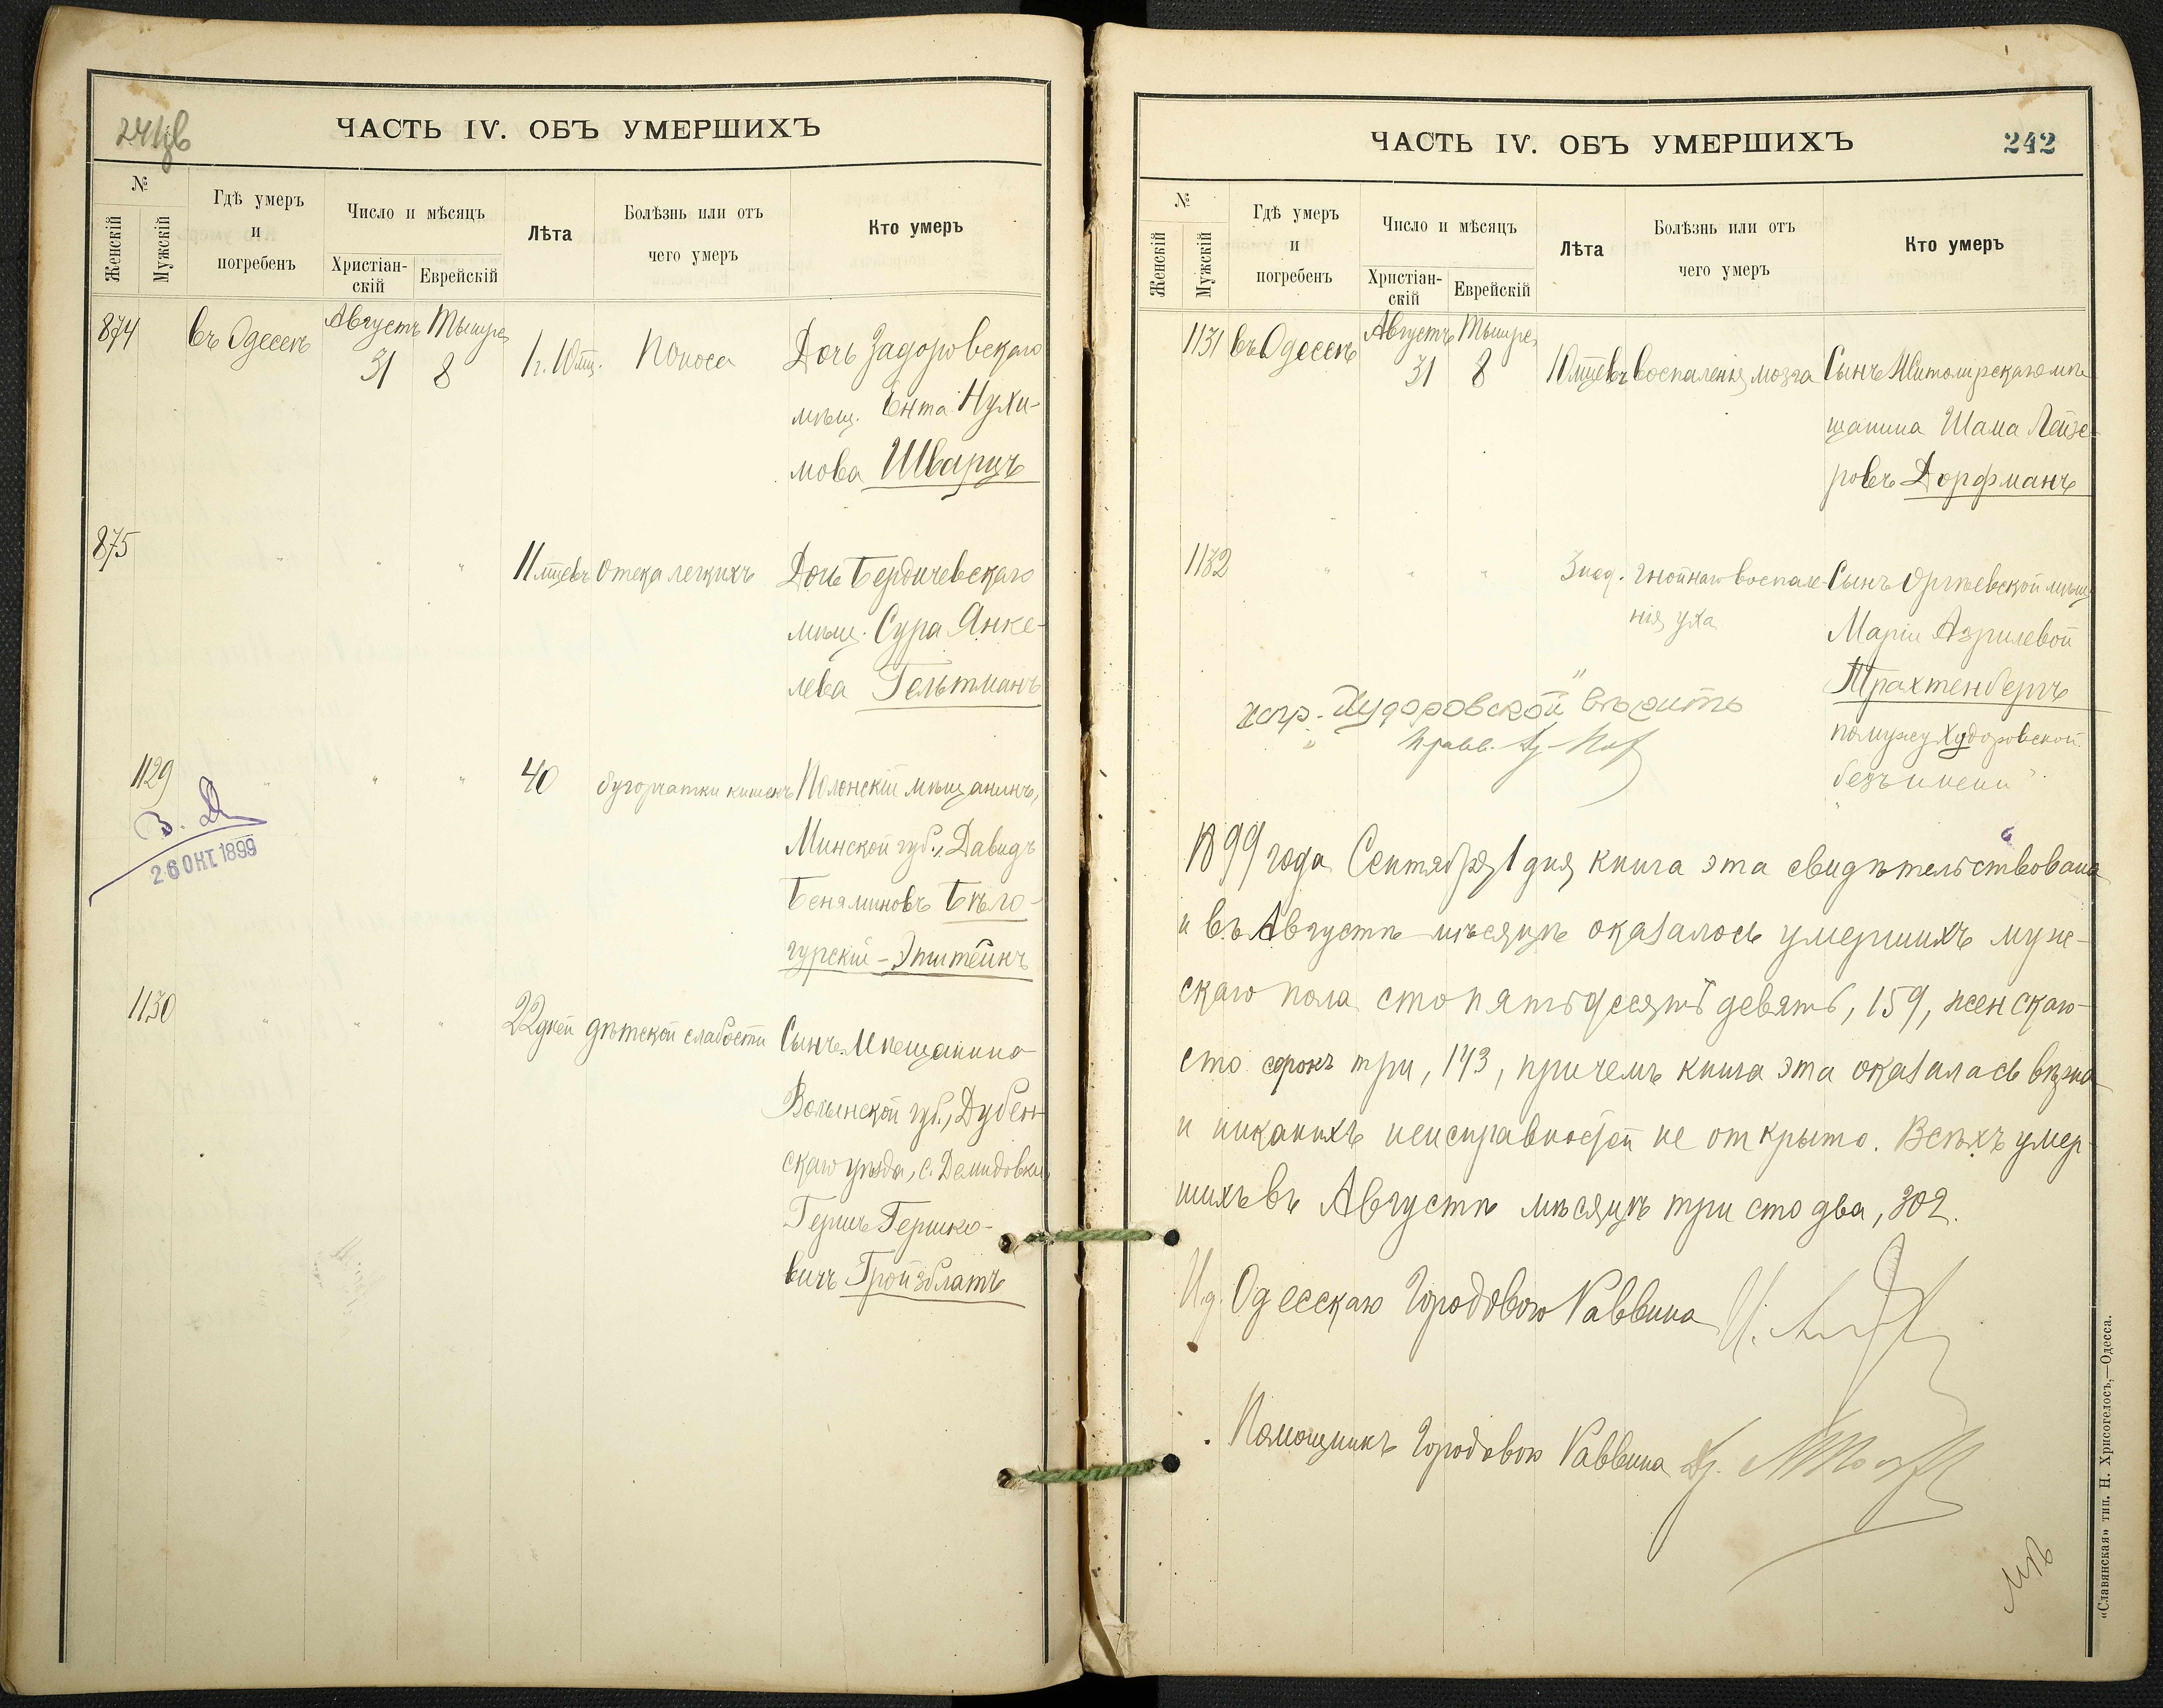 241 об
ЧАСТЬ IV. ОБЪ УМЕРШИХЪ
№
Женскій
Мужскій
Гдѣ умеръ
и
погребенъ
Число и мѣсяцъ
Христіан-
скій
Еврейскій
Лѣта
Болѣзнь или отъ
чего умеръ
Кто умеръ
874 въ Одессѣ Августъ 31 Тышре 8 1 г. 10 мц. Поноса Дочь Задоровскаго
мѣщ. Ента Нухи-
мова Шварцъ
875 " " " 11 мцевъ Отека легкихъ Дочь Бердичевскаго
мѣщ. Сура Янке-
лева Гельтманъ
1129 " " " 40 бугорчатки кишекъ Полонскій мѣщанинъ,
Минской губ., Давидъ
Беняминовъ Бѣло-
гурскій-Эпштейнъ
В. Д
26 ОКТ 1899
1130 " " " 22 дней дѣтской слабости Сынъ мѣщанина
Волынской губ., Дубен-
скаго уѣзда, с. Демидовки
Гершъ Гершко-
вичъ Гройзблатъ
ЧАСТЬ IV. ОБЪ УМЕРШИХЪ
242
№
Женскій
Мужскій
Гдѣ умеръ
и
погребенъ
Число и мѣсяцъ
Христіан-
скій
Еврейскій
Лѣта
Болѣзнь или отъ
чего умеръ
Кто умеръ
1131 въ Одессѣ Августъ 31 Тышре 8 10 мцевъ воспаленія мозга Сынъ Житомірскаго мѣ-
щанина Шама Лейзе-
ровъ Дорфманъ
1132 " " " 3 нед. гнойнаго воспале-
нія уха
Сынъ Оргѣевской мѣщ.
Маріи Азрилевой
Трахтенбергъ
по мужу Худоровской
безъ имени"
испр. Худоровской" вѣрить
Равв.
1899 года Сентября 1 дня книга эта свидѣтельствована
и въ Августѣ мѣсяцѣ оказалось умершихъ муж-
скаго пола сто пятьдесятъ девять, 159, женскаго
сто сорокъ три, 143, причемъ книга эта оказалась вѣрна
и никакихъ неисправностей не открыто. Всѣхъ умер-
шихъ въ Августѣ мѣсяцѣ три сто два, 302.
И.д. Одесскаго Городового Раввина
Помощникъ Городового Раввина
«Славянская» тип. Н. Хрисогелосъ,—Одесса.